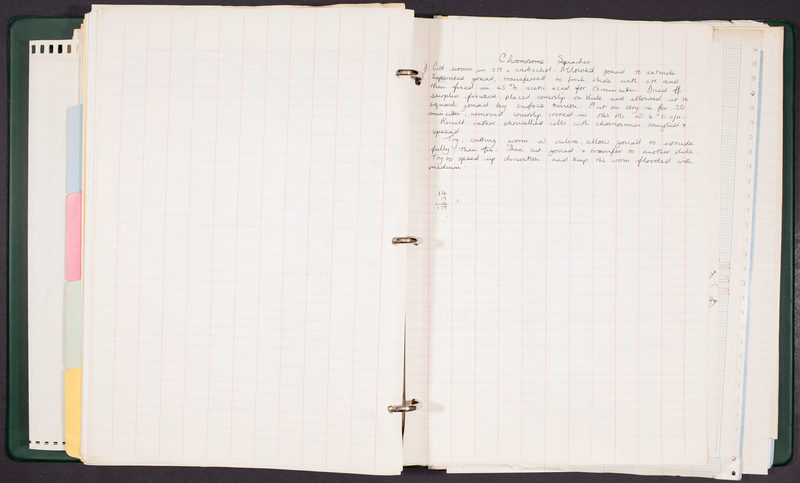 Chromosome Squashes.
1) Cut worm in 2H + carbachol. Allowed gonad to extrude
Separated gonad, transferred to fresh slide with 2H and
then fixed in 45% acetic acid for 15 minutes. Dried off
surplus fixative, placed coverslip on slide and allowed it to
squash gonad by surface tension. Put on dry ice for 20
minutes, removed coverslip in 4°C
Result rather shrivelled cells with chromosomes tangled +
spread.
Try cutting worm at vulva, allow gonad to extrude
fully, then fix. Then cut gonad + transfer to another slide.
Try to speed up dissection and keep the worm flooded with
medium
136
19
177